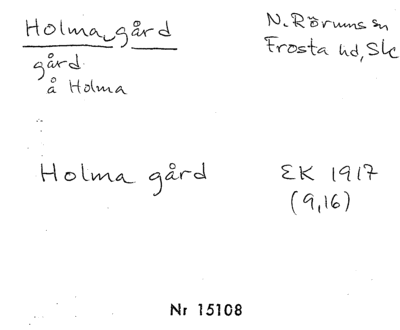 Holma gård
gård
å Holma
N. Rörums sn
Frosta hd, Sk
Holma gård
EK 1917
(9,16)
Nr 15108